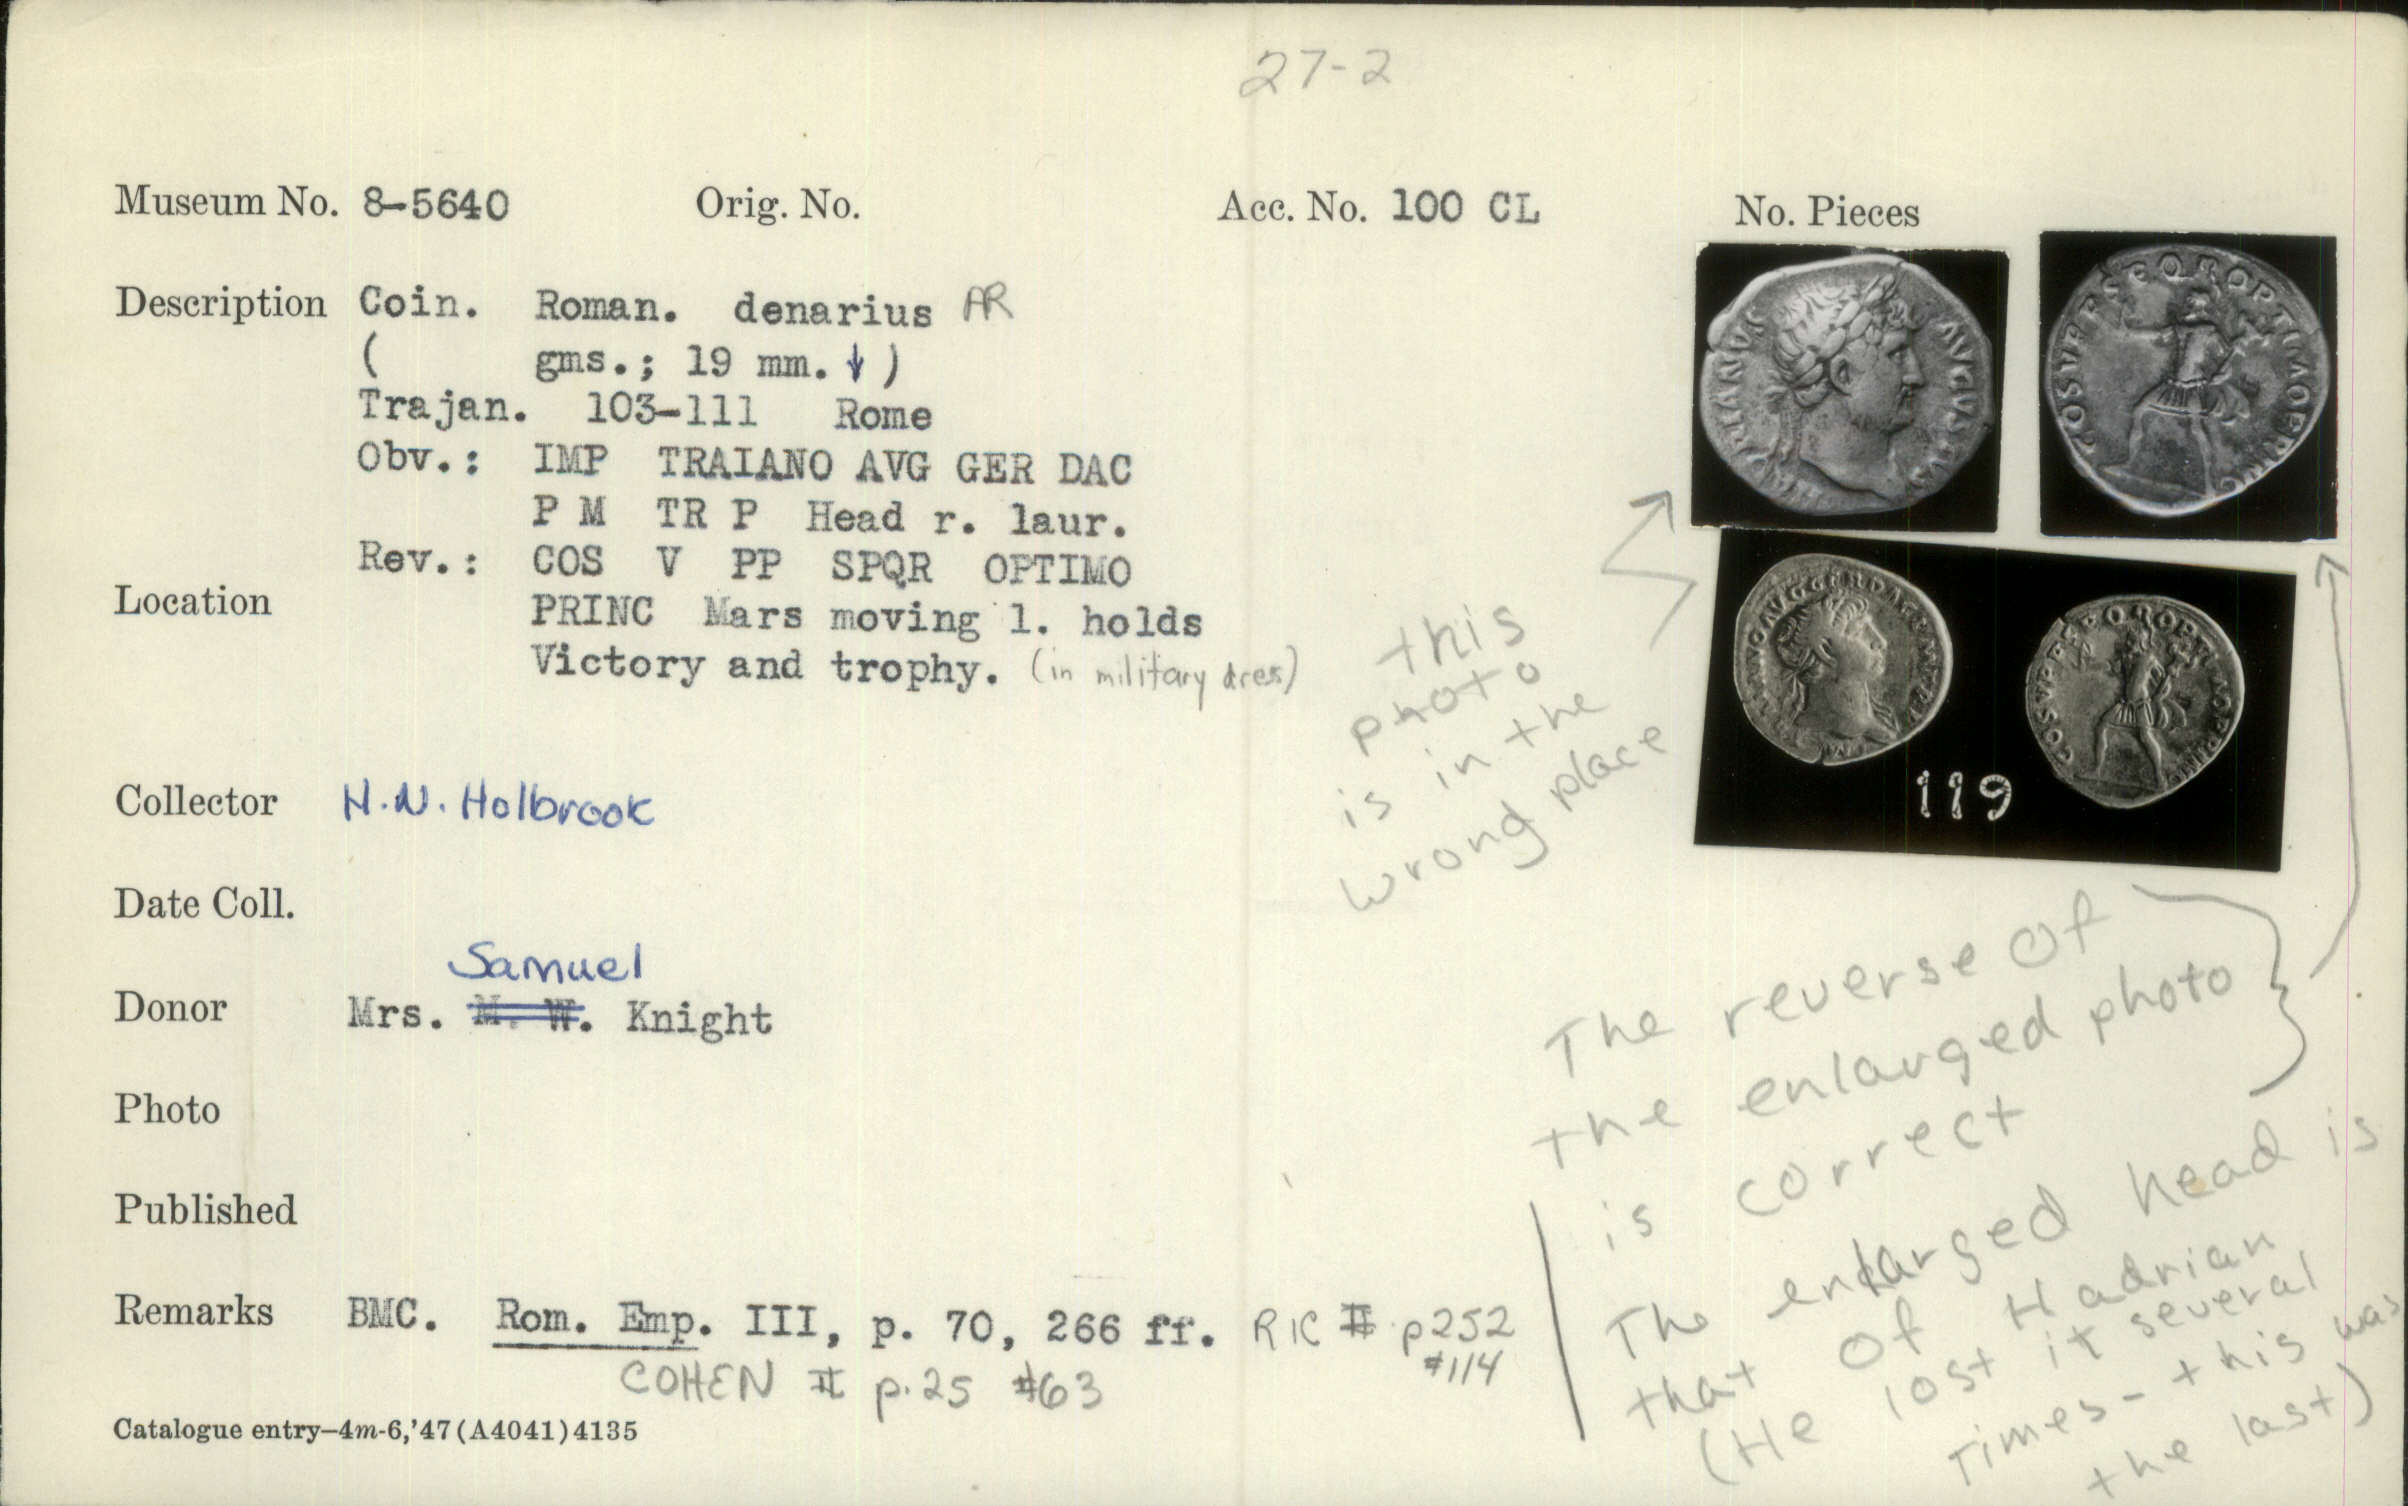 27-2
Museum No. 8-5640 Orig. No. Acc. No. 100 CL No. Pieces
Description Coin. Roman. denarius AR
( gms.; 19 mm. ↓ )
Trajan. 103-111 Rome
Obv.: IMP TRAIANO AVG GER DAC
P M TR P Head r. laur.
Rev.: COS V PP SPQR OPTIMO
Location
PRINC Mars moving l. holds
Victory and trophy. (in military dress)
Collector H.N. Holbrook
Date Coll.
Samuel
Donor Mrs. M. W. Knight
Photo
Published
Remarks BMC. Rom. Emp. III, p. 70, 266 ff. RIC II p252
#114
COHEN II p.25 #63
Catalogue entry—4m-6,'47(A4041)4135
this
photo
is in the
wrong place
119
The reverse of
the enlarged photo
is correct
The enlarged head is
that of Hadrian
(He lost it several
times - this was
the last)